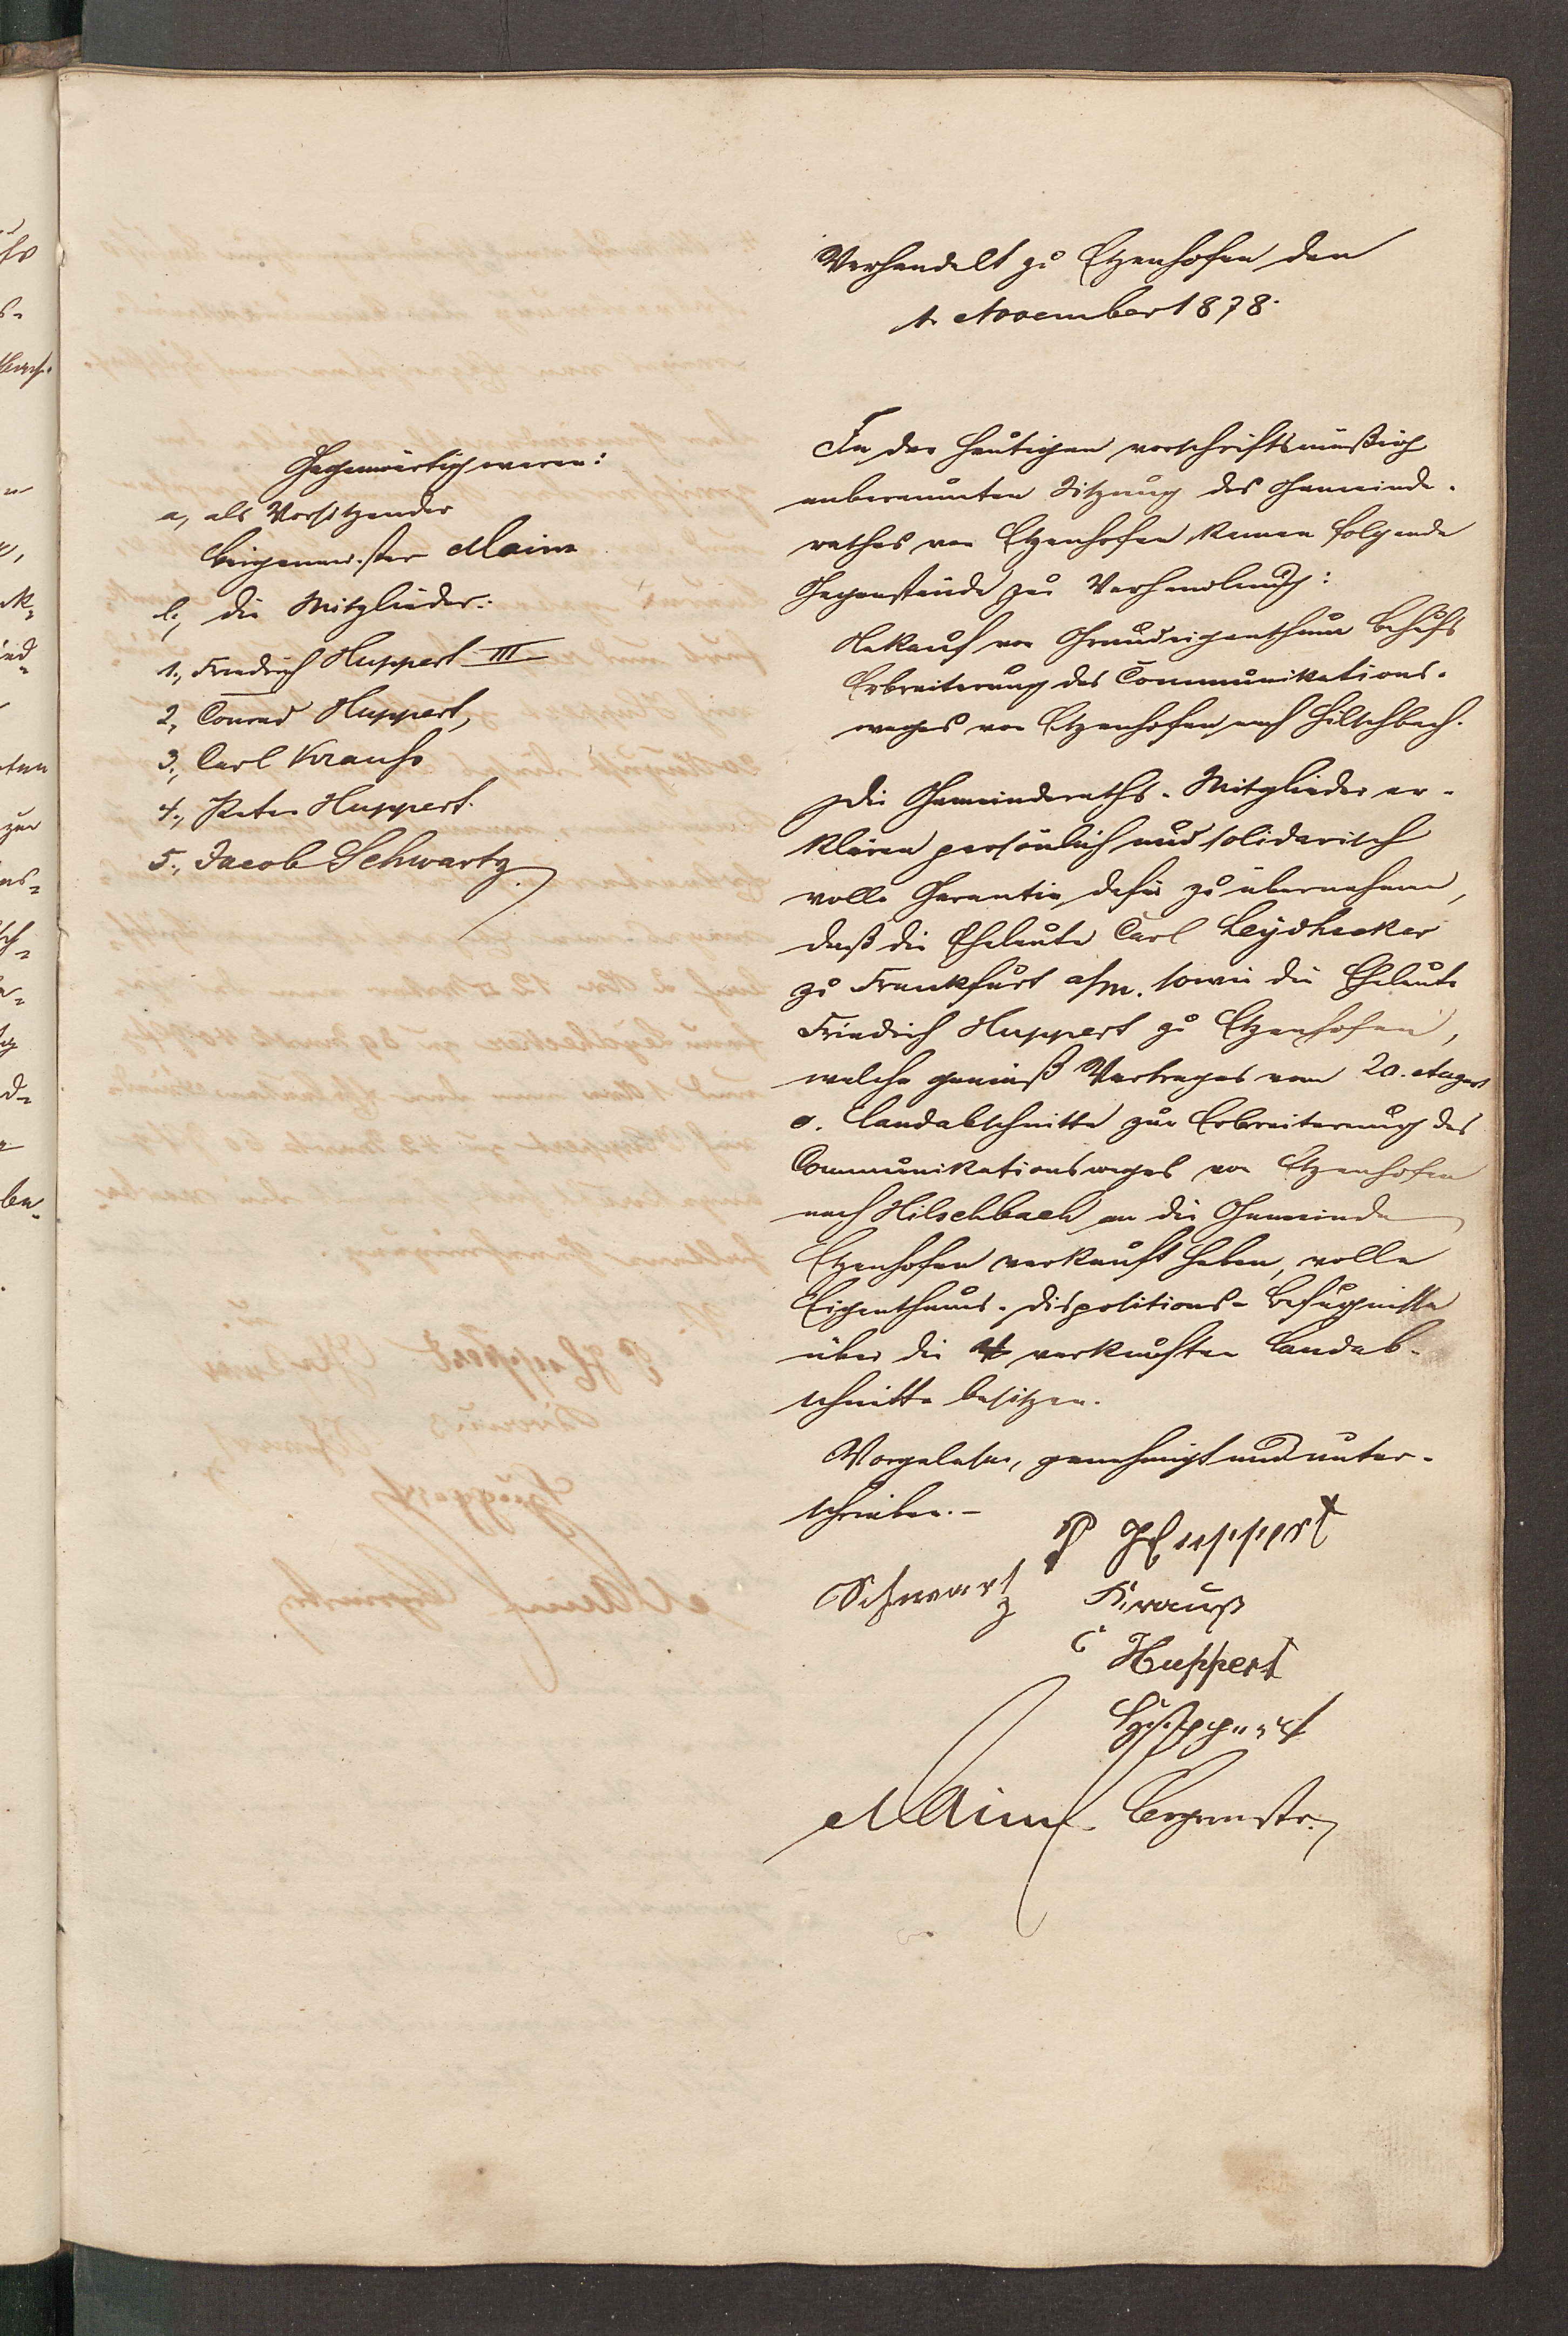 Verhandelt zu Etzenhofen den
1. November 1878.
Gegenwärtig waren:
a, als Vorsitzender
Bürgermeister Maini
b, die Mitglieder:
1., Friedrich Huppert III
2, Conrad Huppert,
3., Carl Krauhs
4., Peter Huppert.
5., Jacob Schwartz.
In der heutigen vorschriftsmäßig
anberaumten Sitzung des Gemeinde-
rathes von Etzenhofen kamen folgende
Gegenstände zur Verhandlung:
Ankauf von Grundeigenthum behufs
Erbreiterung des Communikations-
weges von Etzenhofen nach Hilschbach.
Die Gemeinderaths-Mitglieder er-
klären persönlich und solidarisch
volle Garantie dafür zu übernehmen,
daß die Eheleute Carl Leydhecker
zu Frankfurt a/M. sowie die Eheleute
Friedrich Huppert zu Etzenhofen,
welche gemäß Vertrages vom 20. August
c. Landabschnitte zur Erbreiterung des
Communikationsweges von Etzenhofen
nach Hilschbach an die Gemeinde
Etzenhofen verkauft haben, volle
Eigenthums-Dispositions-Befugnisse
über die verkauften Landab-
schnitte besitzen.
Vorgelesen, genehmigt und unter-
schrieben.-
P Huppert
Schwartz Krauß
C Huppert
Huppert